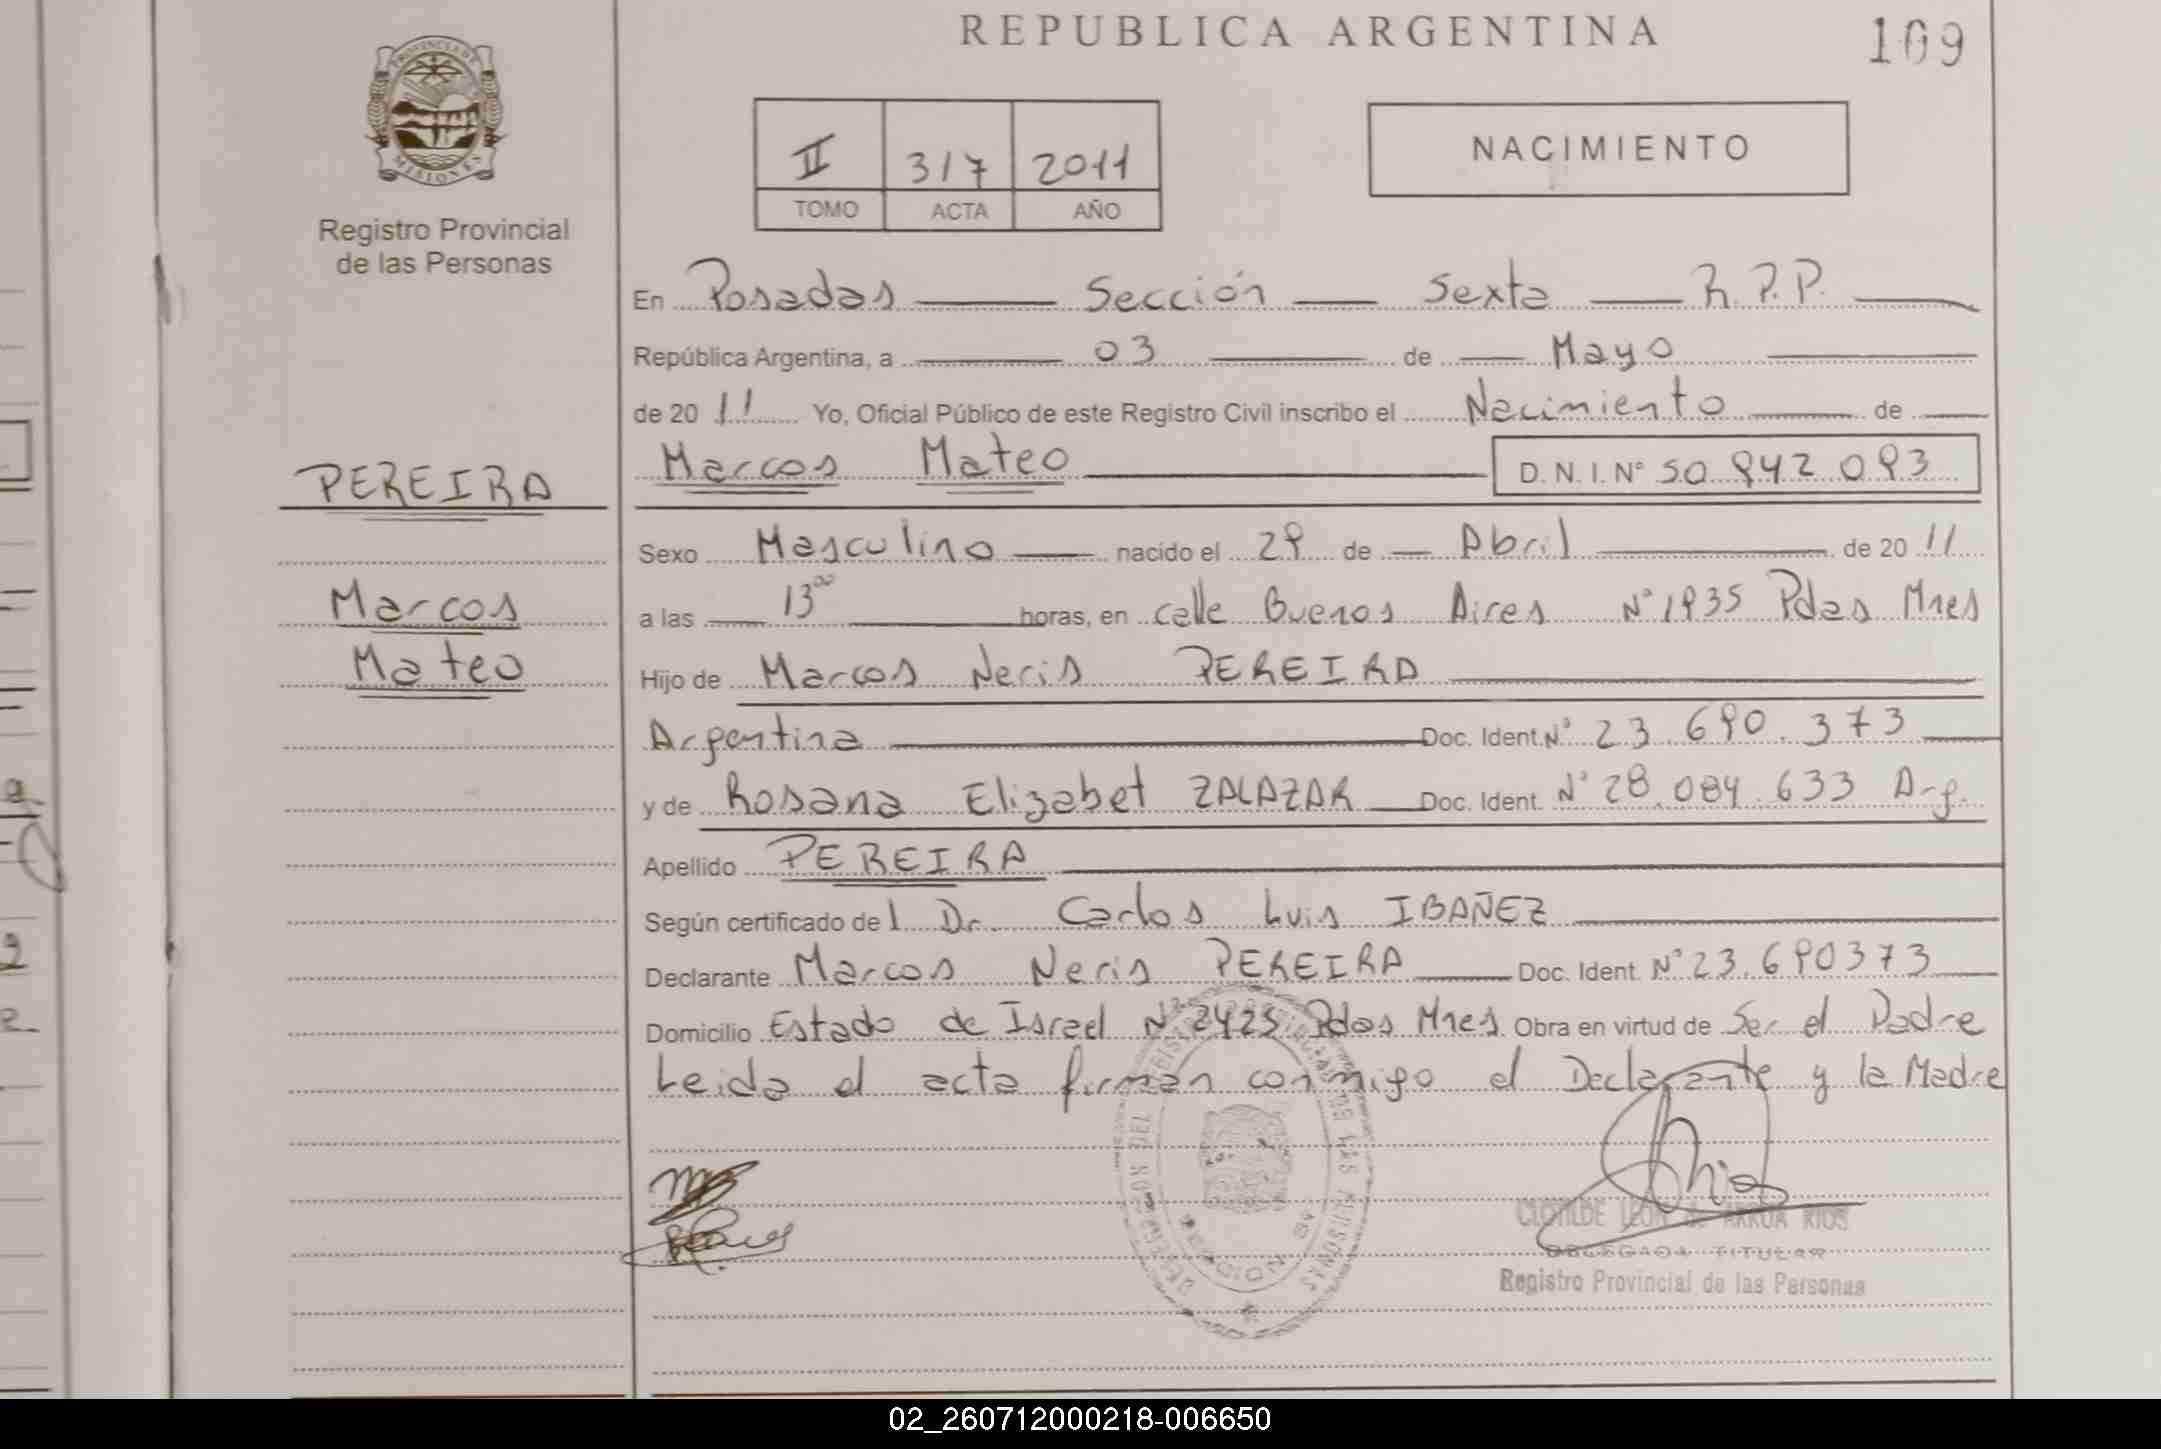 REPUBLICA ARGENTINA
109
PROVINCIA DE
MISIONES
Registro Provincial
de las Personas
II 317 2011
TOMO ACTA AÑO
NACIMIENTO
En Posadas Sección Sexta R.P.P.
República Argentina, a 03 de Mayo
de 2011 Yo, Oficial Público de este Registro Civil inscribo el Nacimiento de
PEREIRA
Marcos Mateo D.N.I.Nº 50.942.093
Sexo Masculino nacido el 29 de Abril de 2011
Marcos
a las 13⁰⁰ horas, en calle Buenos Aires Nº 1935 Pdas Mnes
Mateo
Hijo de Marcos Neris PEREIRA
Argentina Doc. Ident. Nº 23.690.373
y de Rosana Elizabet ZALAZAR Doc. Ident. Nº 28.084.633 Arg.
Apellido PEREIRA
Según certificado del Dr. Carlos Luis IBAÑEZ
Declarante Marcos Neris PEREIRA Doc. Ident. Nº 23.690373
Domicilio Estado de Israel Nº 2425 Pdas Mnes. Obra en virtud de Ser el Padre
Leida el acta firman conmigo el Declarante y la Madre
CLOTILDE LEON de ARRUA RIOS
DELEGADA TITULAR
Registro Provincial de las Personas
02_260712000218-006650